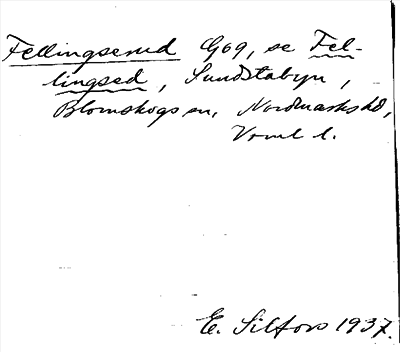 Fellingserud G69, se Fel-
lingsed, Sundstabyn,
Blomskogs sn, Nordmarks hd,
Vrml l.
E. Silfors 1937.